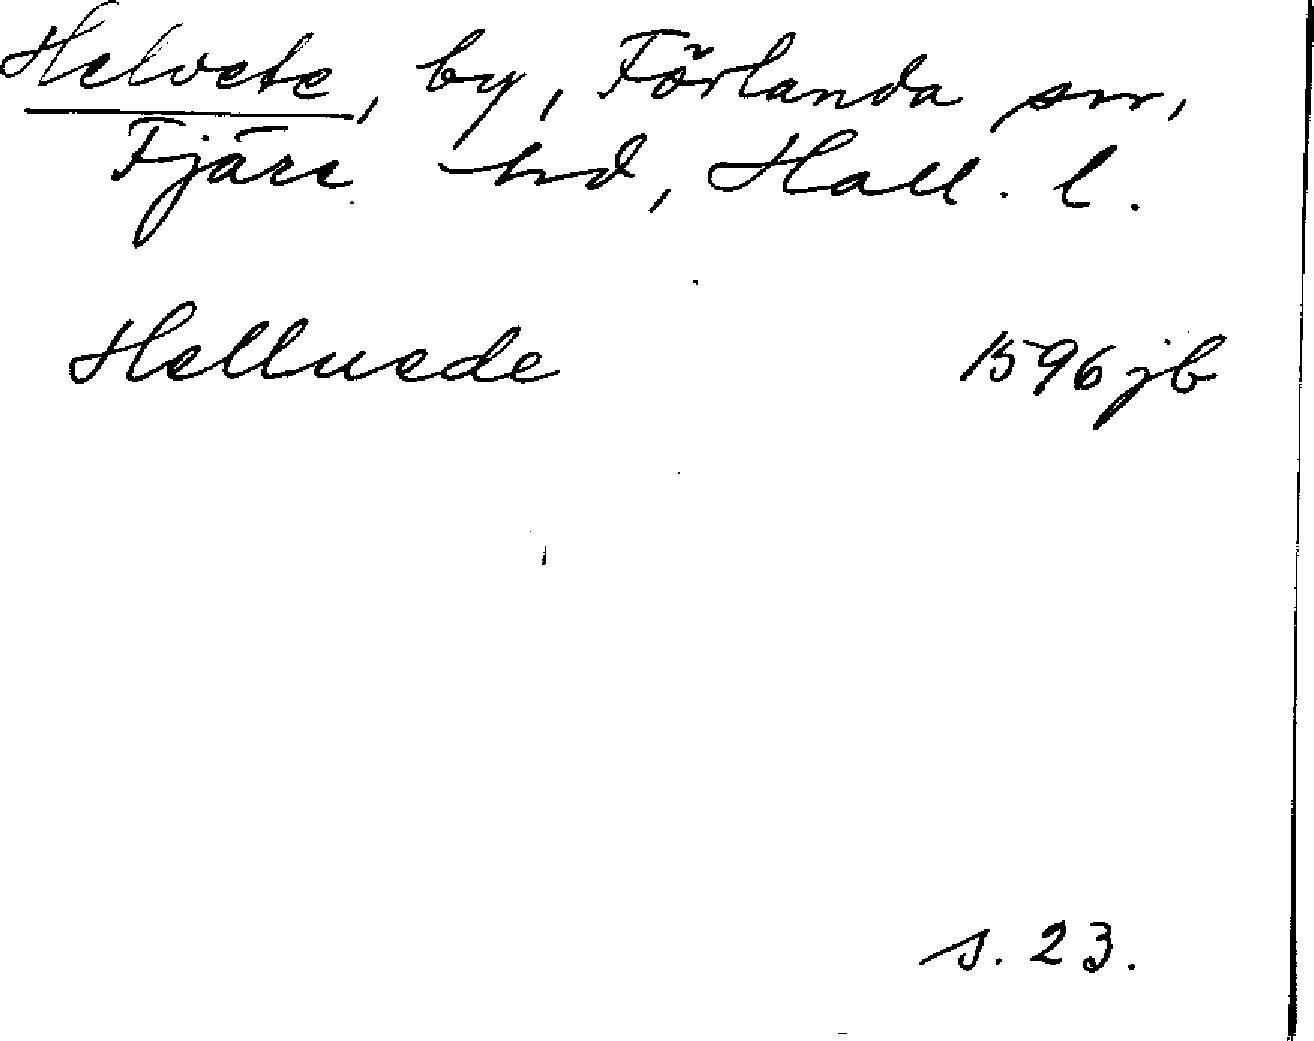 Helvete, by, Förlanda sn,
Fjäre hd, Hall. l.
Helluede 1596 jb
s. 23.